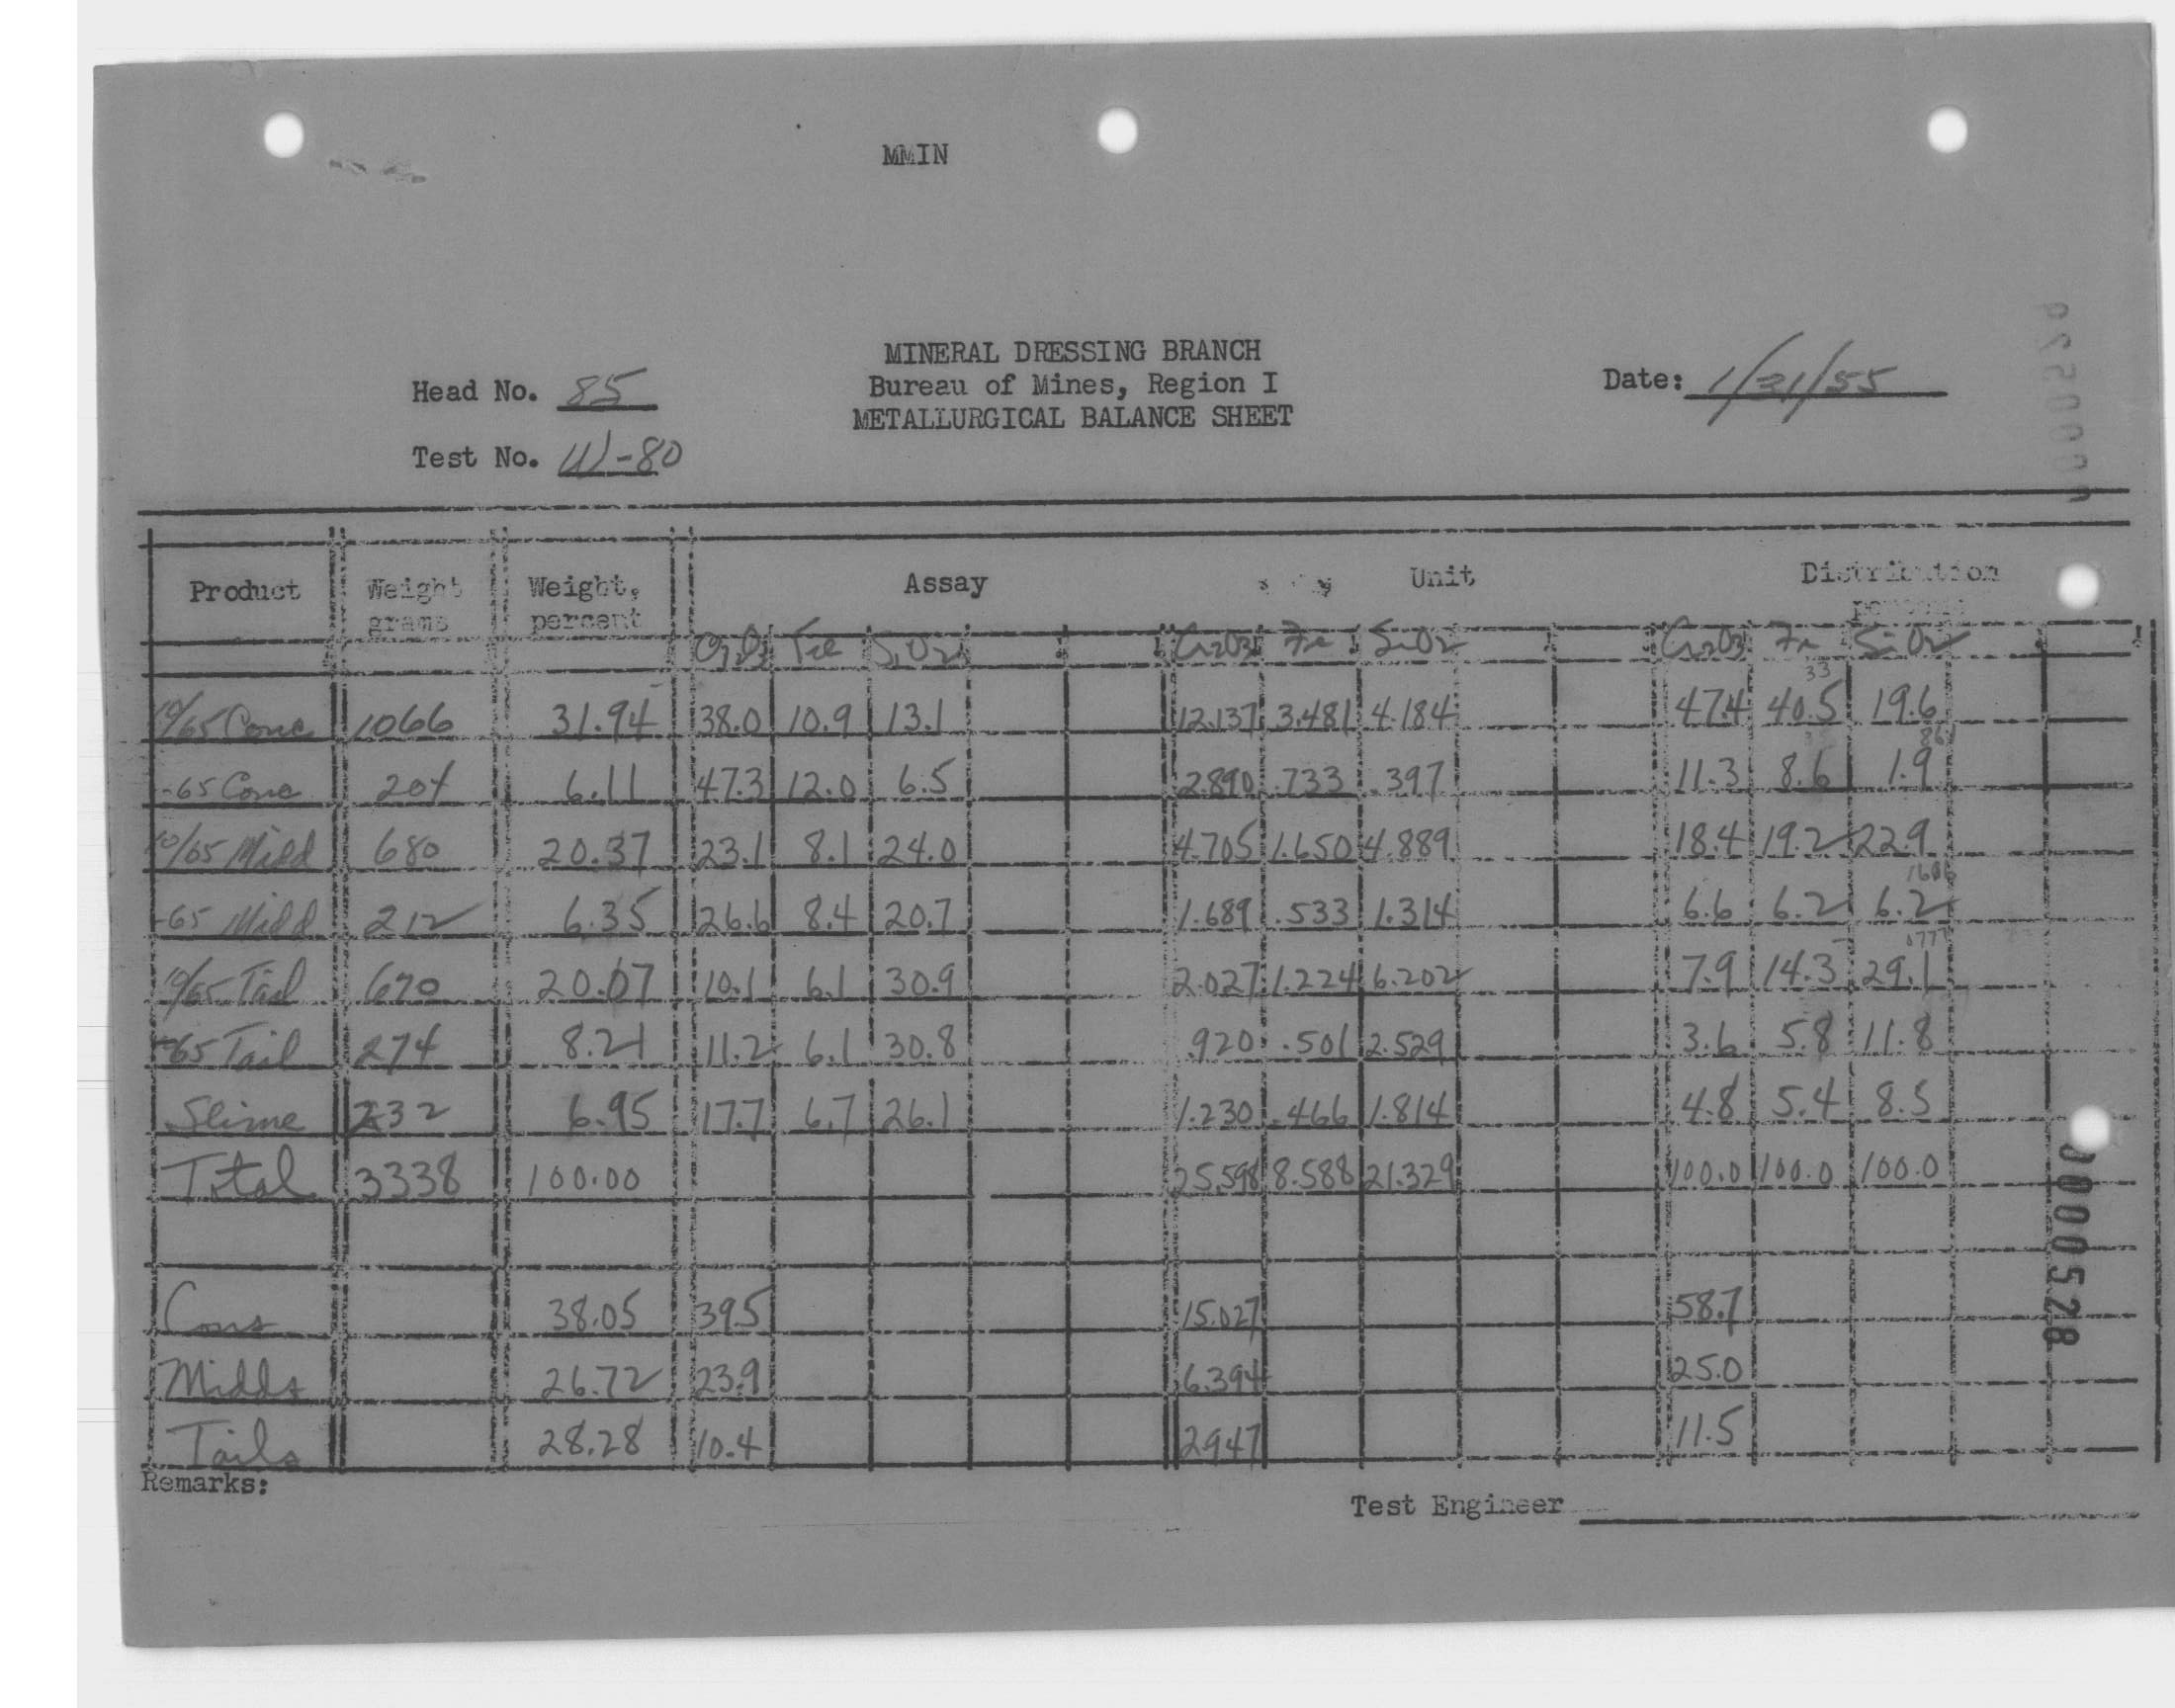 MMIN
MINERAL DRESSING BRANCH
Head No. 85 Bureau of Mines, Region I Date: 1/21/55
METALLURGICAL BALANCE SHEET
Test No. W-80
Product Weight grams Weight, percent Assay Unit Distribution percent
Cr2O3 Fe SiO2 Cr2O3 Fe SiO2 Cr2O3 Fe SiO2
33
10/65 Conc 1066 31.94 38.0 10.9 13.1 12.137 3.481 4.184 47.4 40.5 19.6
-65 Conc 204 6.11 47.3 12.0 6.5 2.890 .733 .397 11.3 8.6 1.9
10/65 Midd 680 20.37 23.1 8.1 24.0 4.705 1.650 4.889 18.4 19.2 22.9
-65 Midd 212 6.35 26.6 8.4 20.7 1.689 .533 1.314 6.6 6.2 6.2
10/65 Tail 670 20.07 10.1 6.1 30.9 2.027 1.224 6.202 7.9 14.3 29.1
-65 Tail 274 8.21 11.2 6.1 30.8 .920 .501 2.529 3.6 5.8 11.8
Slime 232 6.95 17.7 6.7 26.1 1.230 .466 1.814 4.8 5.4 8.5
Total 3338 100.00 25.598 8.588 21.329 100.0 100.0 100.0
Cons 38.05 39.5 15.027 58.7
Midds 26.72 23.9 6.394 25.0
Tails 28.28 10.4 2.947 11.5
Remarks:
Test Engineer
0000528